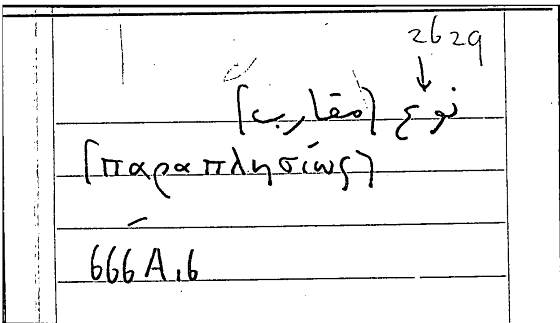 2629
↓
نوع [مقارب]
[παραπλησίως]
666 A.6